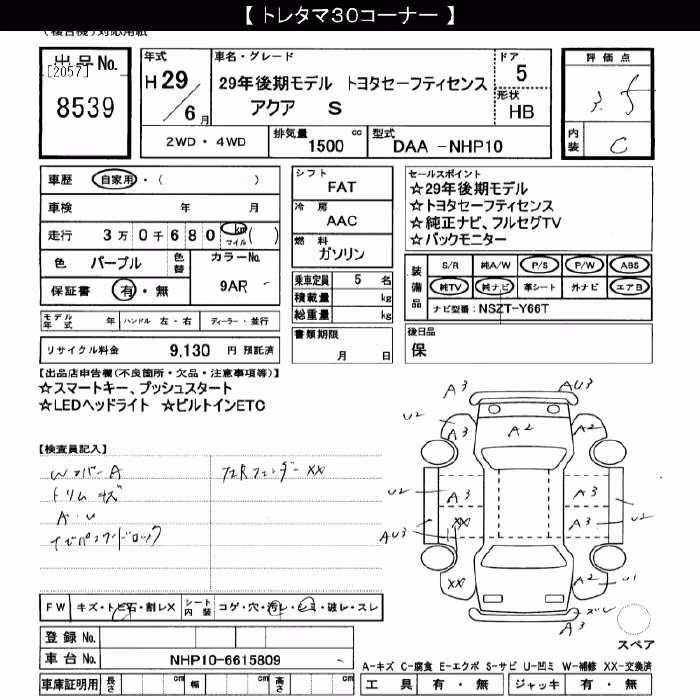 【 トレタマ30コーナー 】
(複合機)対応用紙
出品No.
[2057]
8539
年式
H 29
/ 6 月
車名・グレード
29年後期モデル トヨタセーフティセンス
アクア S
ドア
5
形状
HB
評価点
3.5
内装
C
2WD・4WD
排気量 cc
1500
型式
DAA -NHP10
車歴 自家用・( )
車検 年 月
走行 3万0千680 km マイル ( )
色 パープル 色替 カラーNo.
9AR
保証書 有・無
モデル年式 年 ハンドル 左・右 ディーラー・並行
リサイクル料金 9,130 円 預託済
シフト
FAT
冷房
AAC
燃料
ガソリン
乗車定員 5 名
積載量 kg
総重量 kg
書類期限
月 日
セールスポイント
☆29年後期モデル
☆トヨタセーフティセンス
☆純正ナビ、フルセグTV
☆バックモニター
装備品
S/R 純A/W P/S P/W ABS
純TV 純ナビ 革シート 外ナビ エアB
ナビ型番: NSZT-Y66T
後日品
保
【出品店申告欄(不良箇所・欠品・注意事項等)】
☆スマートキー、プッシュスタート
☆LEDヘッドライト ☆ビルトインETC
【検査員記入】
Wカバー A
トリム キズ
A・U
ナビパスワードロック
左Rフェンダー XX
FW キズ・トビ石・割レX
シート内装 コゲ・穴・汚レ・シミ・破レ・スレ
登録No.
車台No. NHP10-6615809
車庫証明用 長さ cm 幅 cm 高さ cm
A3 AU3
U2 A3 A2 A2
U2 A3 A3 U2
AU3 XX A3
XX A2 U1
キズレ
A3
スペア
A-キズ C-腐食 E-エクボ S-サビ U-凹ミ W-補修 XX-交換済
工具 有・無 ジャッキ 有・無